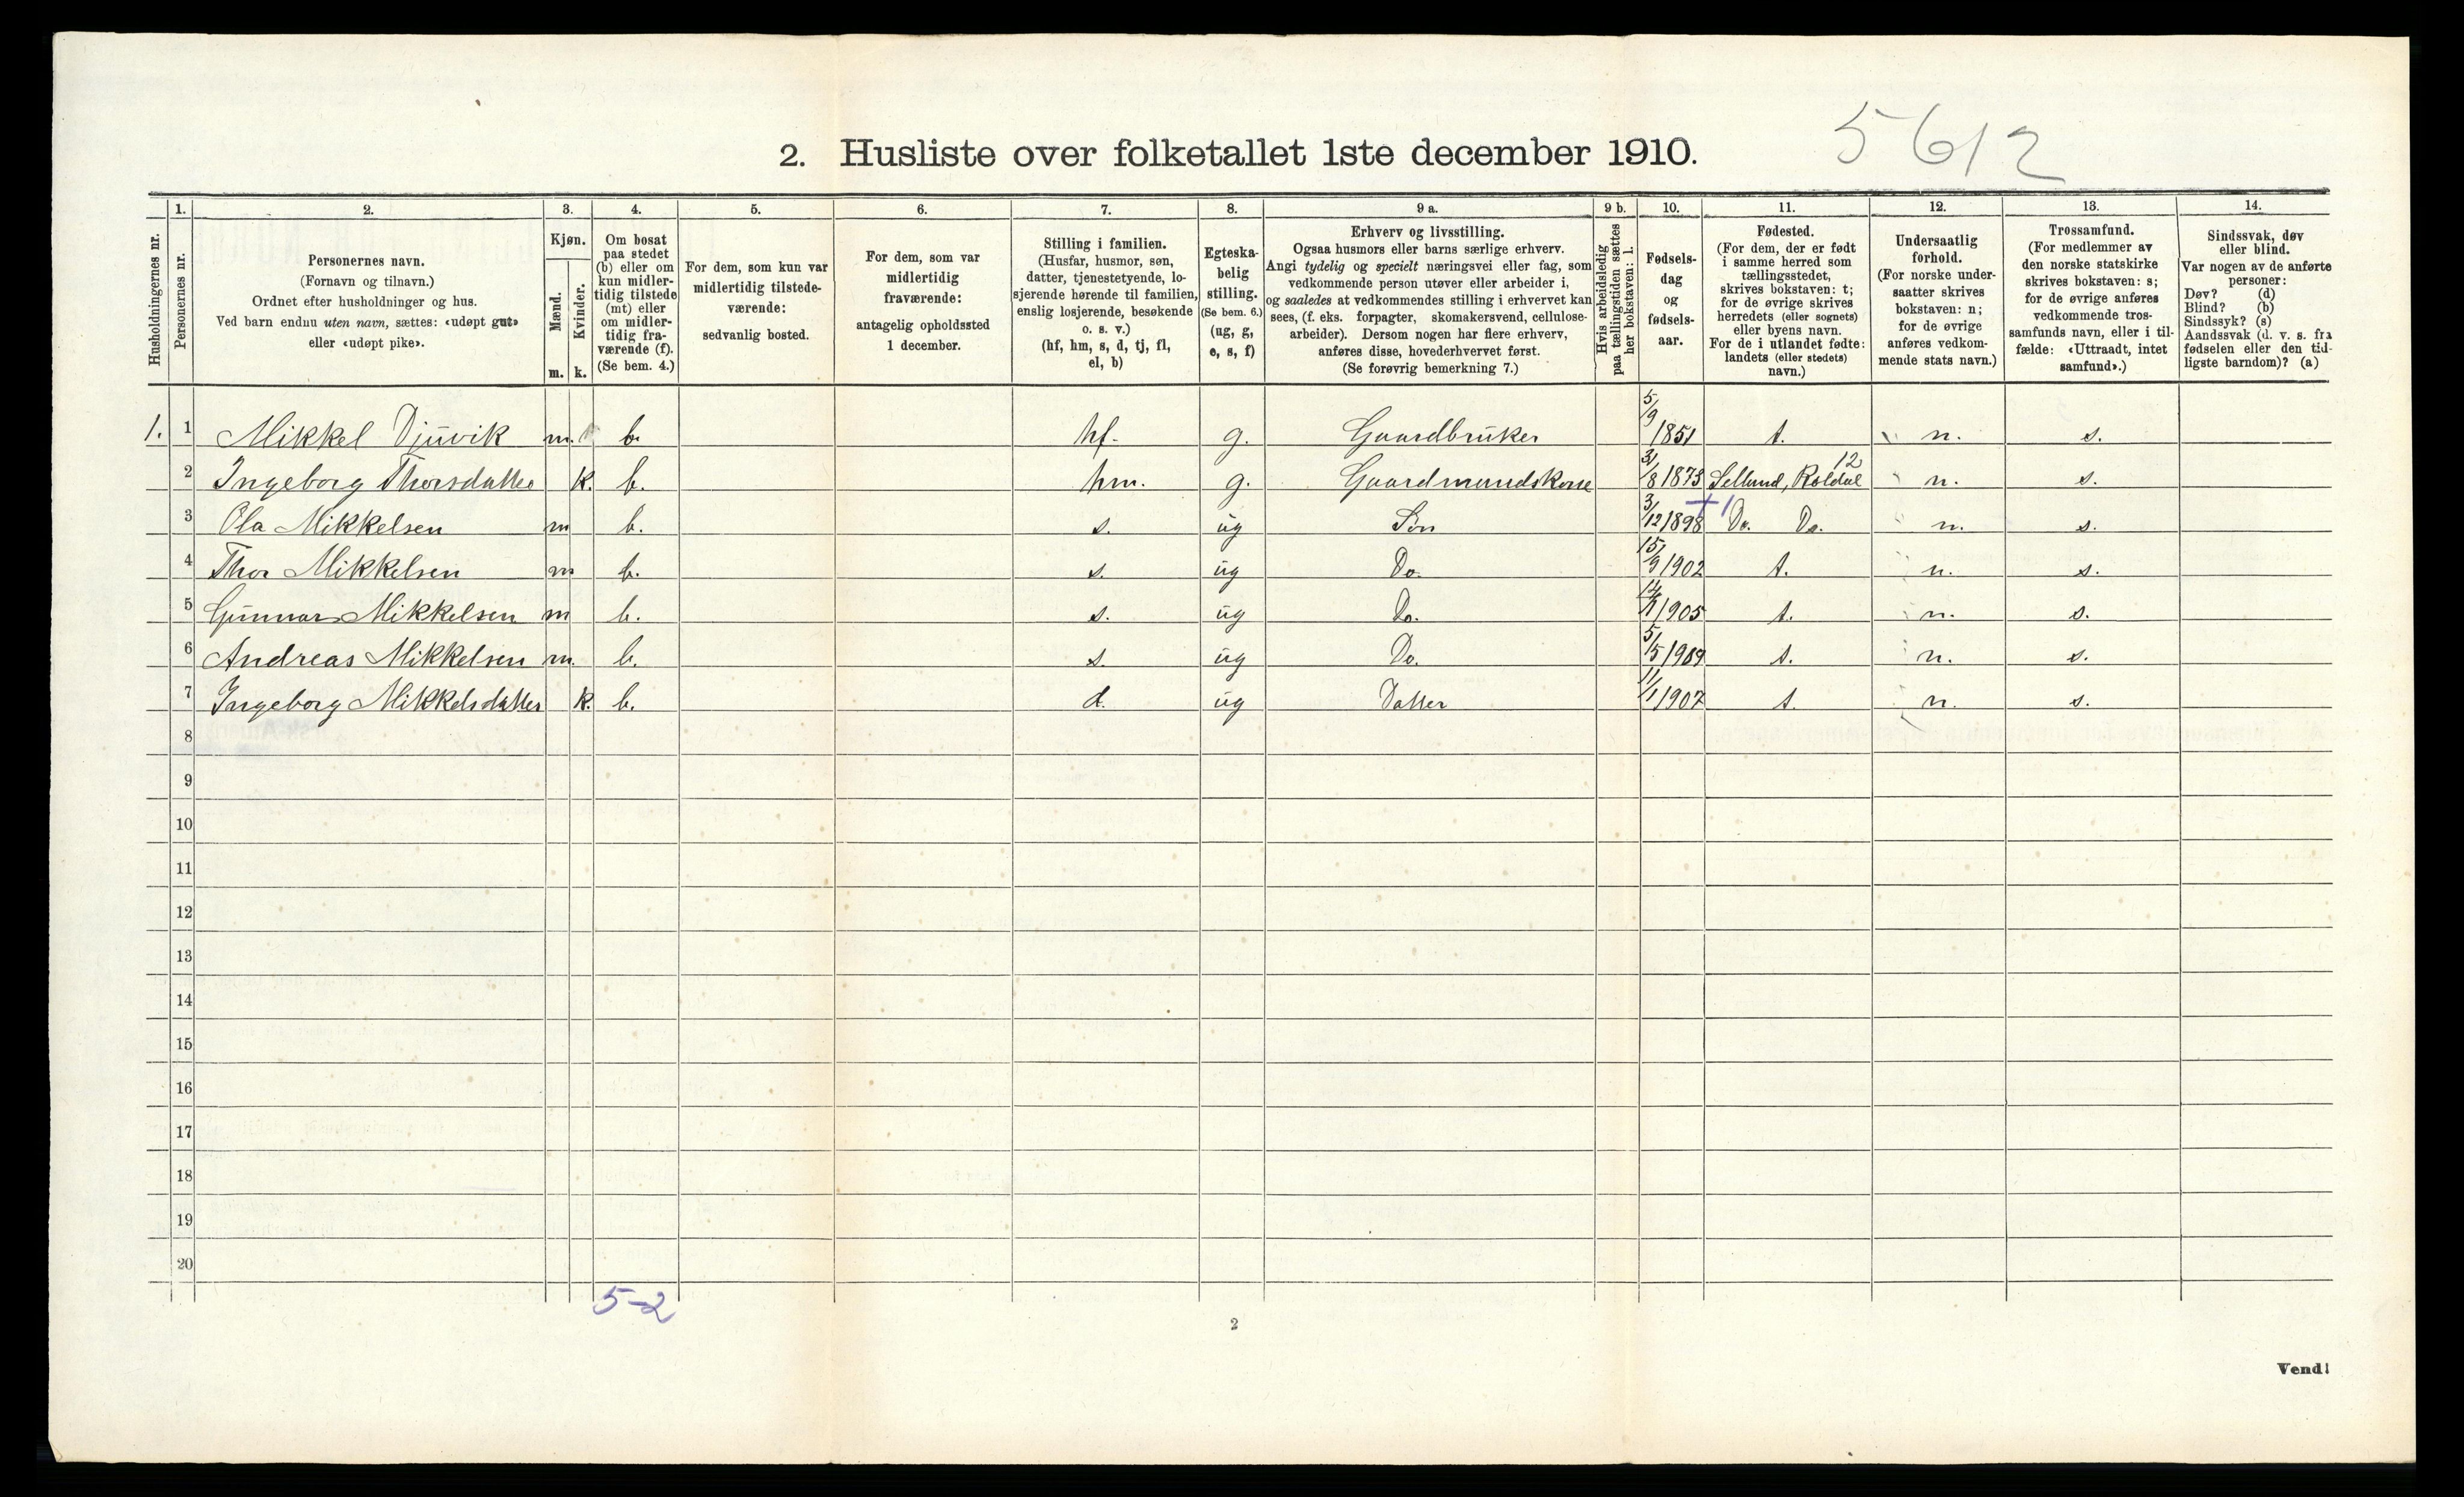 5612
2. Husliste over folketallet 1ste december 1910.
1. 2. 3. 4. 5. 6. 7. 8. 9 a. 9 b. 10. 11. 12. 13. 14.
Husholdningernes nr.
Personernes nr.
Personernes navn.
(Fornavn og tilnavn.)
Ordnet efter husholdninger og hus.
Ved barn endnu uten navn, sættes: «udøpt gut»
eller «udøpt pike».
Kjøn.
Mænd.
Kvinder.
m. k.
Om bosat
paa stedet
(b) eller om
kun midler-
tidig tilstede
(mt) eller
om midler-
tidig fra-
værende (f).
(Se bem. 4.)
For dem, som kun var
midlertidig tilstede-
værende:
sedvanlig bosted.
For dem, som var
midlertidig
fraværende:
antagelig opholdssted
1 december.
Stilling i familien.
(Husfar, husmor, søn,
datter, tjenestetyende, lo-
sjerende hørende til familien,
enslig losjerende, besøkende
o. s. v.)
(hf, hm, s, d, tj, fl,
el, b)
Egteska-
belig
stilling.
(Se bem. 6.)
(ug, g,
e, s, f)
Erhverv og livsstilling.
Ogsaa husmors eller barns særlige erhverv.
Angi tydelig og specielt næringsvei eller fag, som
vedkommende person utøver eller arbeider i,
og saaledes at vedkommendes stilling i erhvervet kan
sees, (f. eks. forpagter, skomakersvend, cellulose-
arbeider). Dersom nogen har flere erhverv,
anføres disse, hovederhvervet først.
(Se forøvrig bemerkning 7.)
Hvis arbeidsledig
paa tællingstiden sættes
her bokstaven: l.
Fødsels-
dag
og
fødsels-
aar.
Fødested.
(For dem, der er født
i samme herred som
tællingsstedet,
skrives bokstaven: t;
for de øvrige skrives
herredets (eller sognets)
eller byens navn.
For de i utlandet fødte:
landets (eller stedets)
navn.)
Undersaatlig
forhold.
(For norske under-
saatter skrives
bokstaven: n;
for de øvrige
anføres vedkom-
mende stats navn.)
Trossamfund.
(For medlemmer av
den norske statskirke
skrives bokstaven: s;
for de øvrige anføres
vedkommende tros-
samfunds navn, eller i til-
fælde: «Uttraadt, intet
samfund».)
Sindssvak, døv
eller blind.
Var nogen av de anførte
personer:
Døv? (d)
Blind? (b)
Sindssyk? (s)
Aandssvak (d. v. s. fra
fødselen eller den tid-
ligste barndom)? (a)
1. 1 Mikkel Djuvik m. b. hf. g. Gaardbruker 5/9 1851 t. n. s.
2 Ingeborg Thorsdatter k. b. hm. g. Gaardmandskone 31/8 1873 Røldal 12 n. s.
3 Ola Mikkelsen m b. s. ug Søn 3/12 1898 +1 Do. Do. n. s.
4 Thor Mikkelsen m b. s. ug Do. 15/9 1902 t. n. s.
5 Gunnar Mikkelsen m b. s. ug Do. 1905 t. n. s.
6 Andreas Mikkelsen m. b. s. ug Do. 5/5 1909 t. n. s.
7 Ingeborg Mikkelsdatter k. b. d. ug Datter 11/1 1907 t. n. s.
8
9
10
11
12
13
14
15
16
17
18
19
20
5-2
2
Vend!